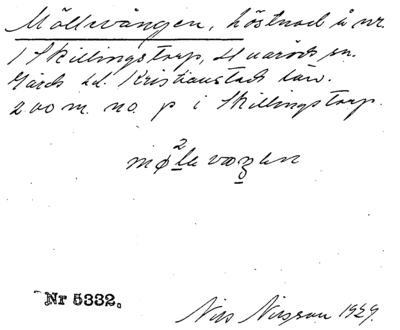 Möllevången, höstnad å nr.
1 Skillingstorp, Huaröds sn.
Gärds hd. Kristianstads län.
200 m. no. p i Skillingstorp.
Nr 5332.
Nils Nilsson 1929.